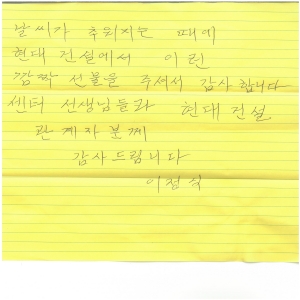 날씨가 추워지는 때에
현대 건설에서 이런
깜짝 선물을 주셔서 감사 합니다
센터 선생님들과 현대 건설
관계자분께
감사드립니다
이점식